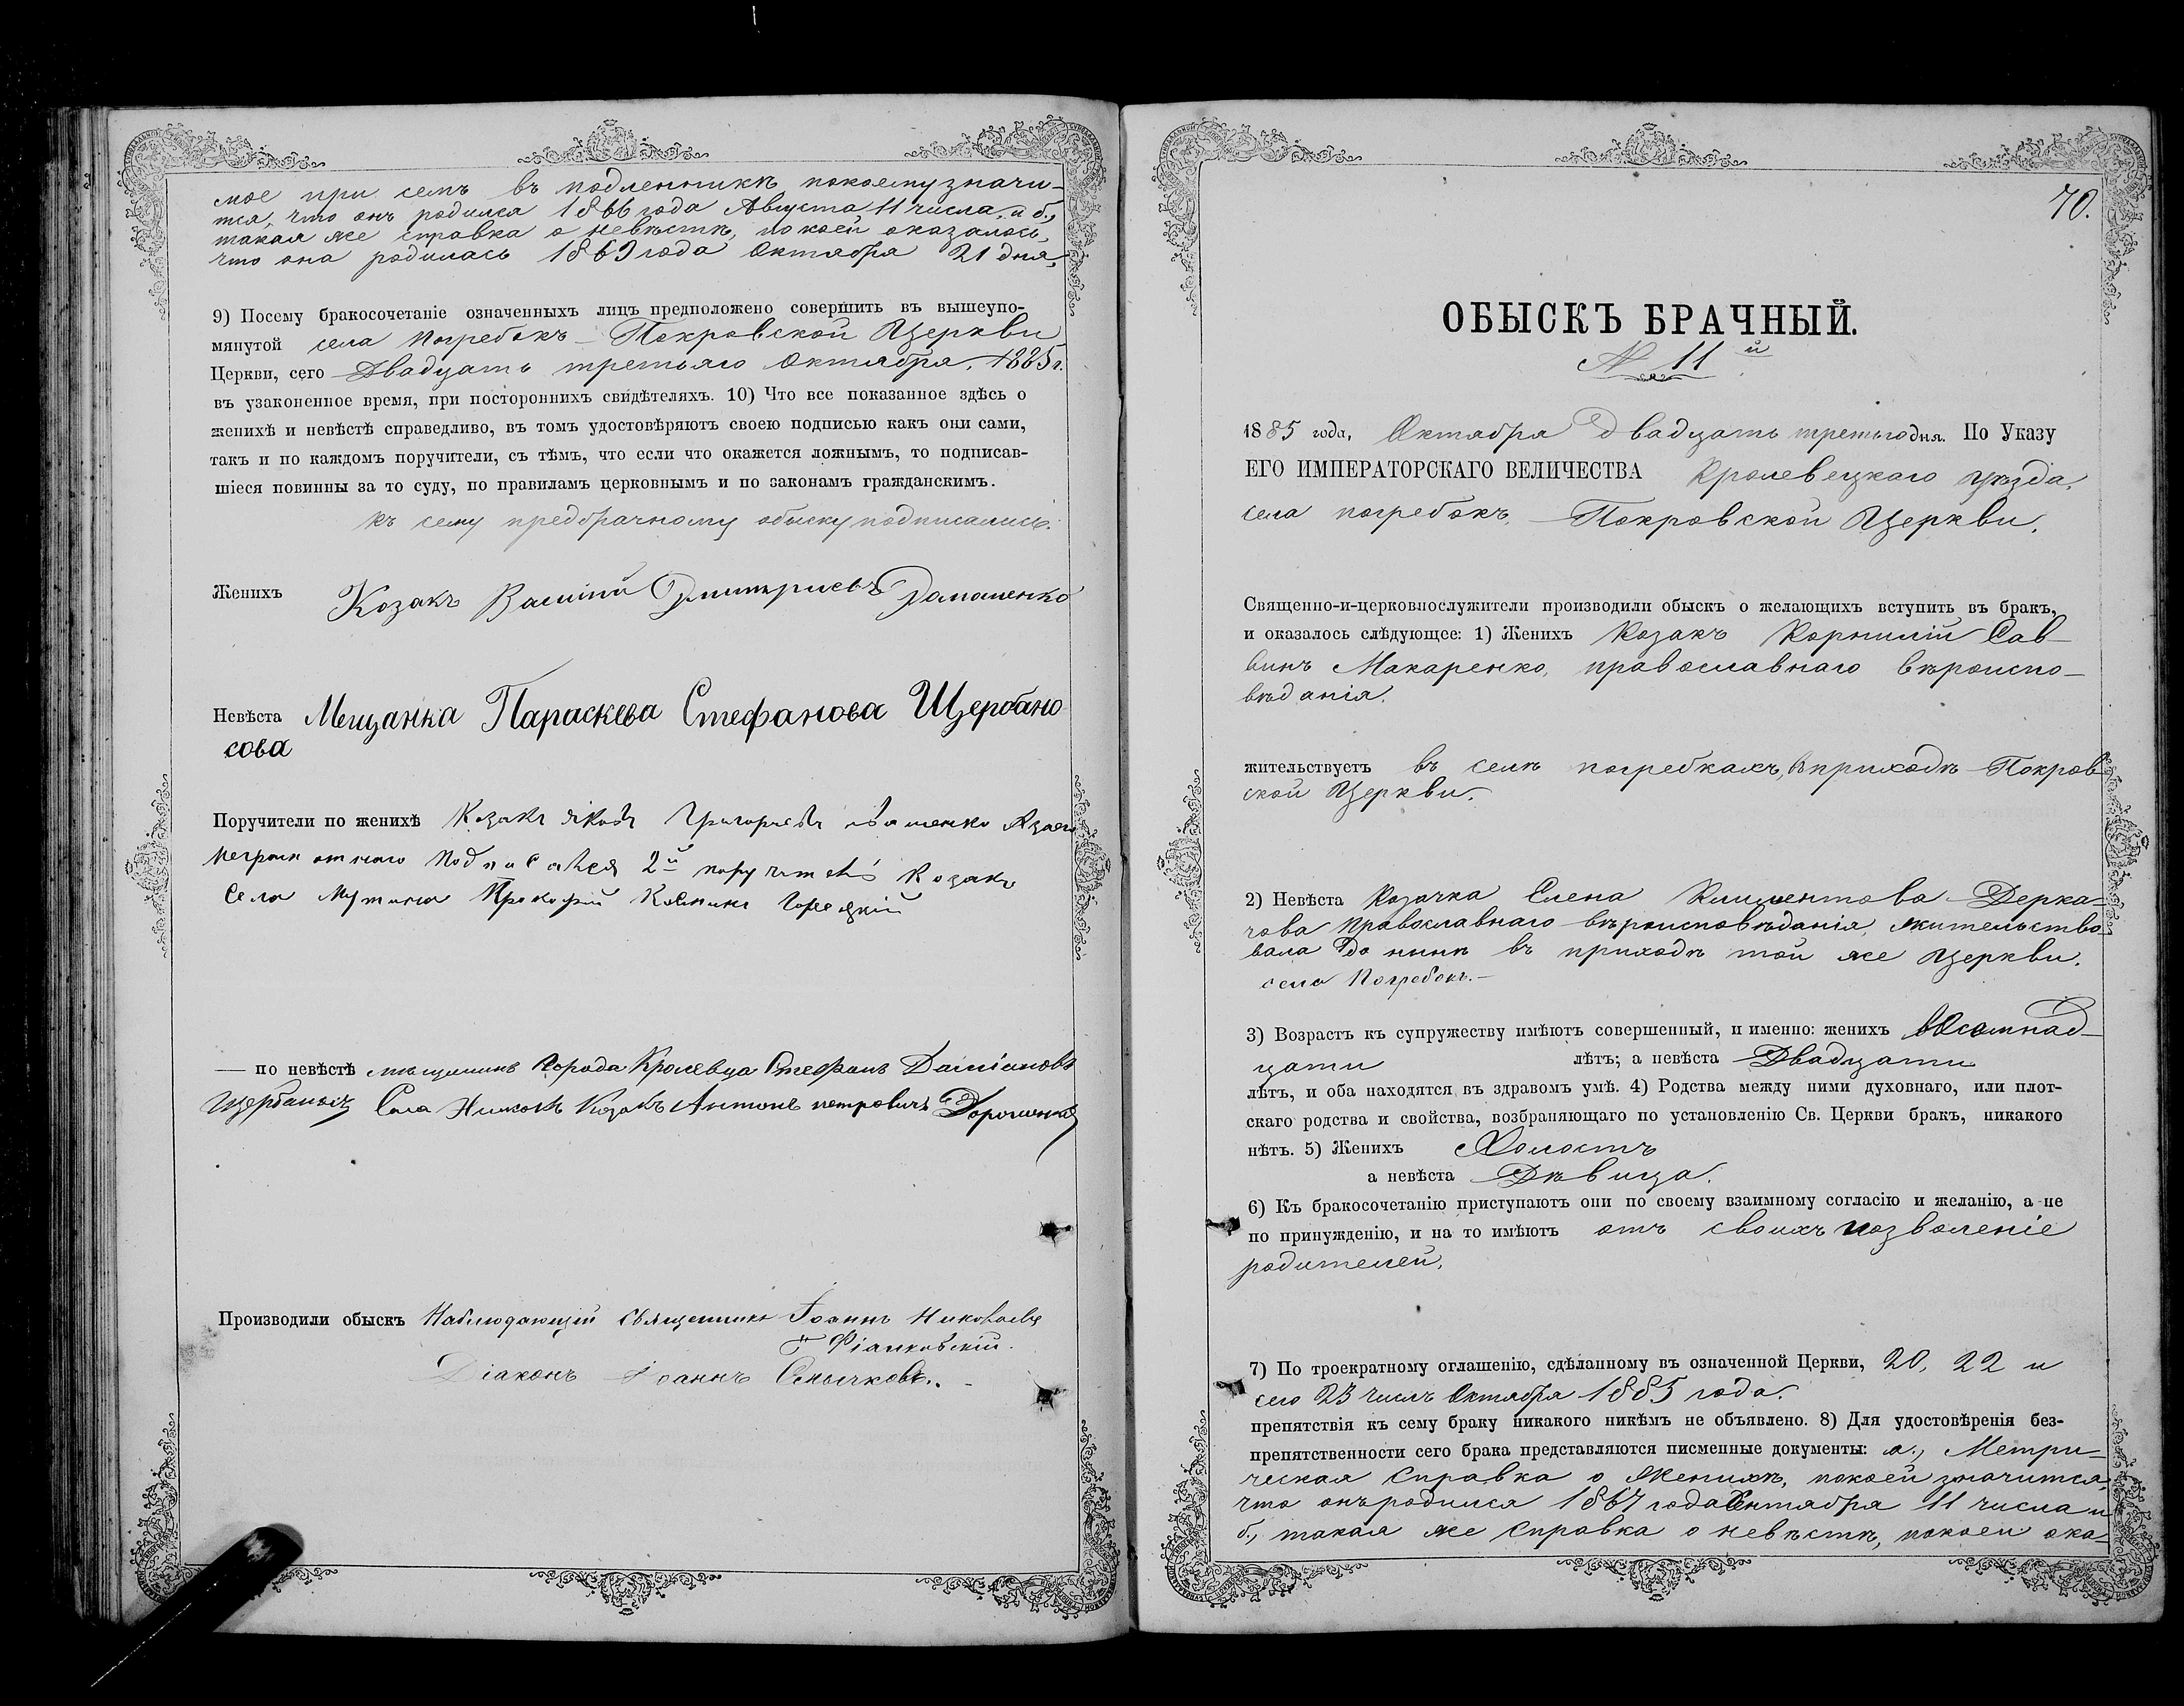 мое при семъ въ подленникѣ, покоемузначи-
тся, что онъ родился 1866 года Августа 11 числа, и б.,
такая же справка о невѣстѣ, по коей оказалось,
что она родилась 1869 года Октября 21 дня.
9) Посему бракосочетаніе означенныхъ лицъ предположено совершить въ вышеупо-
мянутой села Погребокъ Покровской Церкви
Церкви, сего Двадцать третьяго Октября, 1885 г.
въ узаконенное время, при постороннихъ свидѣтеляхъ. 10) Что все показанное здѣсь о
женихѣ и невѣстѣ справедливо, въ томъ удостовѣряютъ своею подписью какъ они сами,
такъ и по каждомъ поручители, съ тѣмъ, что если что окажется ложнымъ, то подписав-
шіеся повинны за то суду, по правиламъ церковнымъ и по законамъ гражданскимъ.
къ сему предбрачному обыску подписались:
Женихъ Козакъ Василій Дмитріевъ
Невѣста Мещанка Параскева Стефанова Щербано
сова
Поручители по женихѣ Козакъ Яковъ Григорьевъ
неграмотнаго подписался 2й поручитель Козакъ
Села Мутина Прокофій
— по невѣстѣ мѣщанинъ города Кролевца Стефанъ Даміановъ
Щербаносъ Козакъ Антонъ петровичъ Дорошенко
Производили обыскъ Наблюдающій священникъ Іоаннъ Николаевъ
Фіалковскій.
Діаконъ Іоаннъ
70.
ОБЫСКЪ БРАЧНЫЙ.
№ 11й
1885 года, Октября двадцать третьяго дня. По Указу
ЕГО ИМПЕРАТОРСКАГО ВЕЛИЧЕСТВА Кролевецкаго уѣзда,
села погребокъ, Покровской Церкви.
Священно-и-церковнослужители производили обыскъ о желающихъ вступить въ бракъ,
и оказалось слѣдующее: 1) Женихъ Козакъ Корнилій Сав-
винъ Макаренко, православнаго вѣроиспо-
вѣданія.
жительствуетъ въ селѣ погребкахъ, въ приходѣ Покров
ской Церкви.
2) Невѣста Козачка Елена Климентова Дерка-
чова Православнаго вѣроисповѣданія, жительство-
вала до нынѣ въ приходѣ той же Церкви.
села Погребокъ.—
3) Возрастъ къ супружеству имѣютъ совершенный, и именно: женихъ восемнад-
цати лѣтъ; а невѣста Двадцати
лѣтъ, и оба находятся въ здравомъ умѣ. 4) Родства между ними духовнаго, или плот-
скаго родства и свойства, возбраняющаго по установленію Св. Церкви бракъ, никакого
нѣтъ. 5) Женихъ Холостъ
а невѣста Дѣвица.
6) Къ бракосочетанію приступаютъ они по своему взаимному согласію и желанію, а не
по принужденію, и на то имѣютъ отъ своихъ позволеніе
родителей.
7) По троекратному оглашенію, сдѣланному въ означенной Церкви, 20, 22 и
сего 23 числъ Октября 1885 года.
препятствія къ сему браку никакого никѣмъ не объявлено. 8) Для удостовѣренія без-
препятственности сего брака представляются писменные документы: а., Метри-
ческая справка о Женихѣ, покоей значится,
что онъ родился 1867 года Сентября 11 числа и
б., такая же справка о невѣстѣ, покоеи ока-